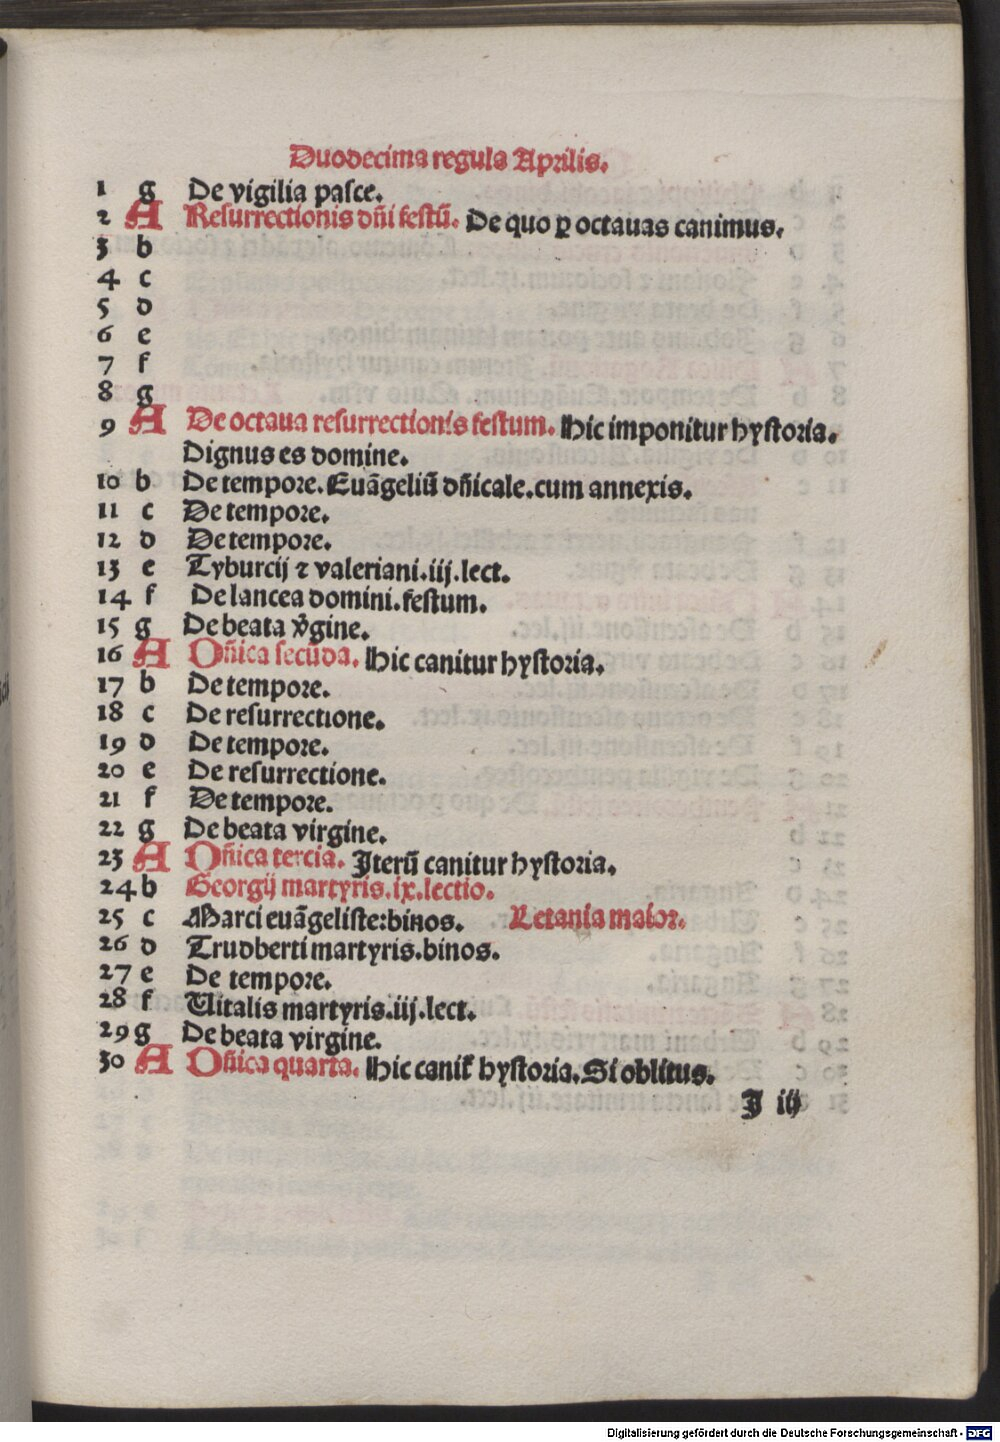 Duodecima regula Aprilis.
1 g De vigilia pasce.
2 A Resurrectionis dñi festū. De quo ꝑ octauas canimus.
3 b
4 c
5 d
6 e
7 f
8 g
9 A De octaua resurrectionis festum. Hic imponitur hystoria.
Dignus es domine.
10 b De tempore. Euāgeliū dñicale.cum annexis.
11 c De tempore.
12 d De tempore.
13 e Tyburcij ⁊ valeriani.iij.lect.
14 f De lancea domini.festum.
15 g De beata v̓gine.
16 A Dñica secūda. Hic canitur hystoria.
17 b De tempore.
18 c De resurrectione.
19 d De tempore.
20 e De resurrectione.
21 f De tempore.
22 g De beata virgine.
23 A Dñica tercia. Iterū canitur hystoria.
24 b Georgij martyris.ix.lectio.
25 c Marci euāgeliste:binos. Letania maior.
26 d Trudberti martyris.binos.
27 e De tempore.
28 f Uitalis martyris.iij.lect.
29 g De beata virgine.
30 A Dñica quarta. Hic canit᷑ hystoria. Si oblitus.
I iij
Digitalisierung gefördert durch die Deutsche Forschungsgemeinschaft - DFG